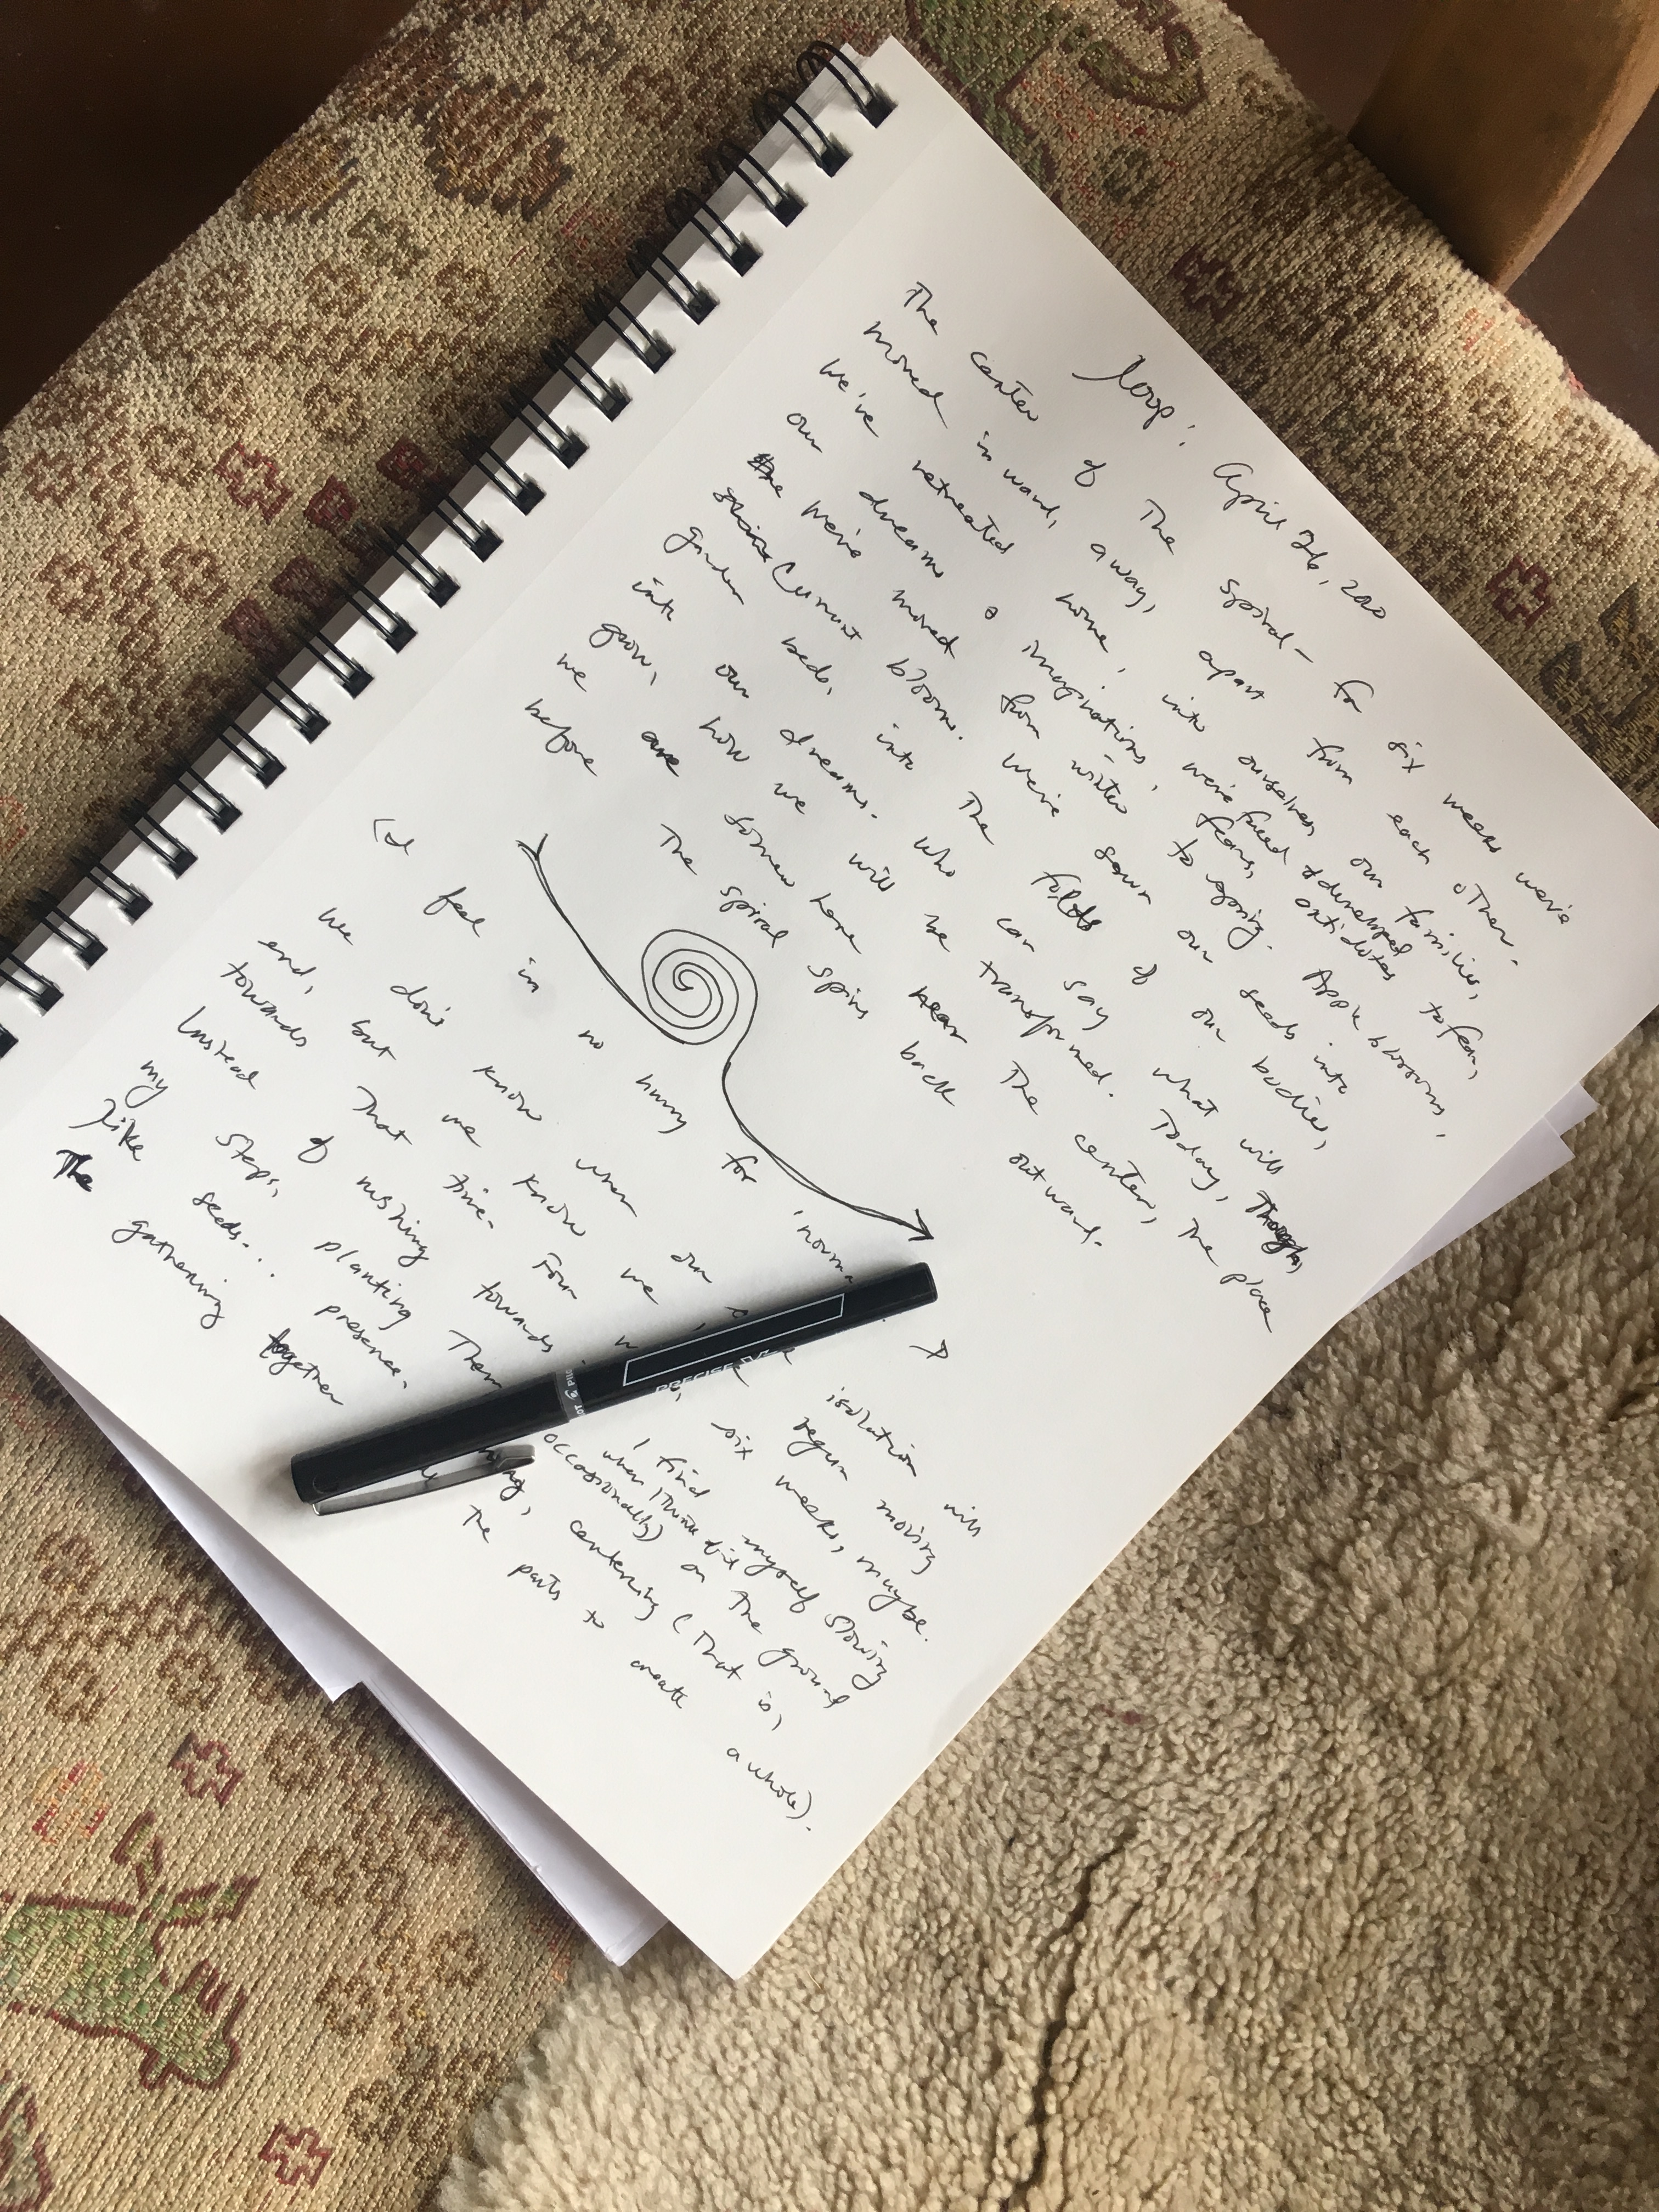 loop: April 26, 2020
The center of The spiral – for six weeks we've
moved inward, away, apart from each other.
We've retreated home, into ourselves, our families,
our dreams & imaginations, we've faced & developed
fears, antidotes to fear,
We've moved from winter to spring. Apple blossoms,
Currant blooms. We've sown our seeds into
garden beds, into The folds of our bodies,
into our dreams. Who can say what will
grow, how we will be transformed. Today, Though,
we are somewhere near The center, The place
before The spiral spins back outward.
I feel in no hurry for 'norma
We don't know when our isolation will
end, but we know we, begun moving
towards That time. Four six weeks, maybe.
Instead of rushing towards I find myself slowing
my steps, planting Them (when I Think of it
occasionally) on The ground
like seeds... presence, centering (That is,
The gathering together The parts to create a whole).
PRECISE V5
PILOT